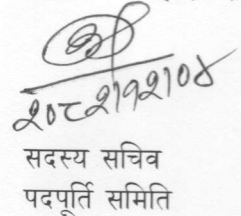 २०८२।१२।०४
सदस्य सचिव
पदपूर्ति समिति